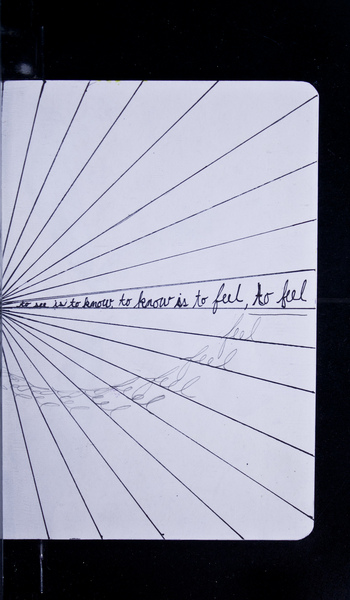 to see is to know, to know is to feel, to feel
feel
feel
feel